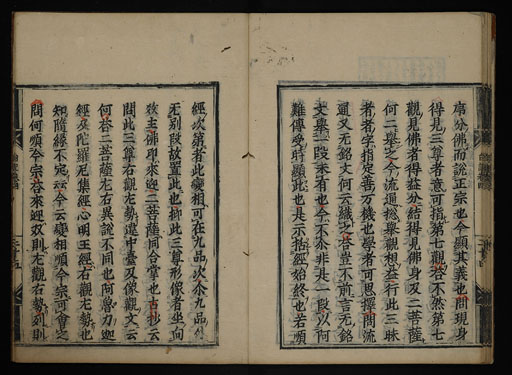 序分佛而說正宗也今顯其義也問現身
得見三尊者意可指第七觀答不然第七
觀見佛者得益分結得見佛身及二菩薩
何二擧之今流通揔擧觀想益行此三昧
者者字指定善万機也學者可思擇問流
通又无銘文何云織之答豈不前言无銘
文擧一段未有也今不尒非是一段以何
難傳受時顯此也是示括經始終也若順
經次第者此變相可在九品次余九品
无別段故置此也抑此三尊形像者坐向
教主佛印來迎二菩薩同合掌也古抄云
問此三尊右觀左勢違中臺及像觀文云
何答二菩薩左右異說不同也阿魯力迦
經及陀羅尼集經心明王經右觀左勢也
知隨緣不定云云今云變相順今宗可會之
問何順今宗答來迎奴則左觀右勢列則